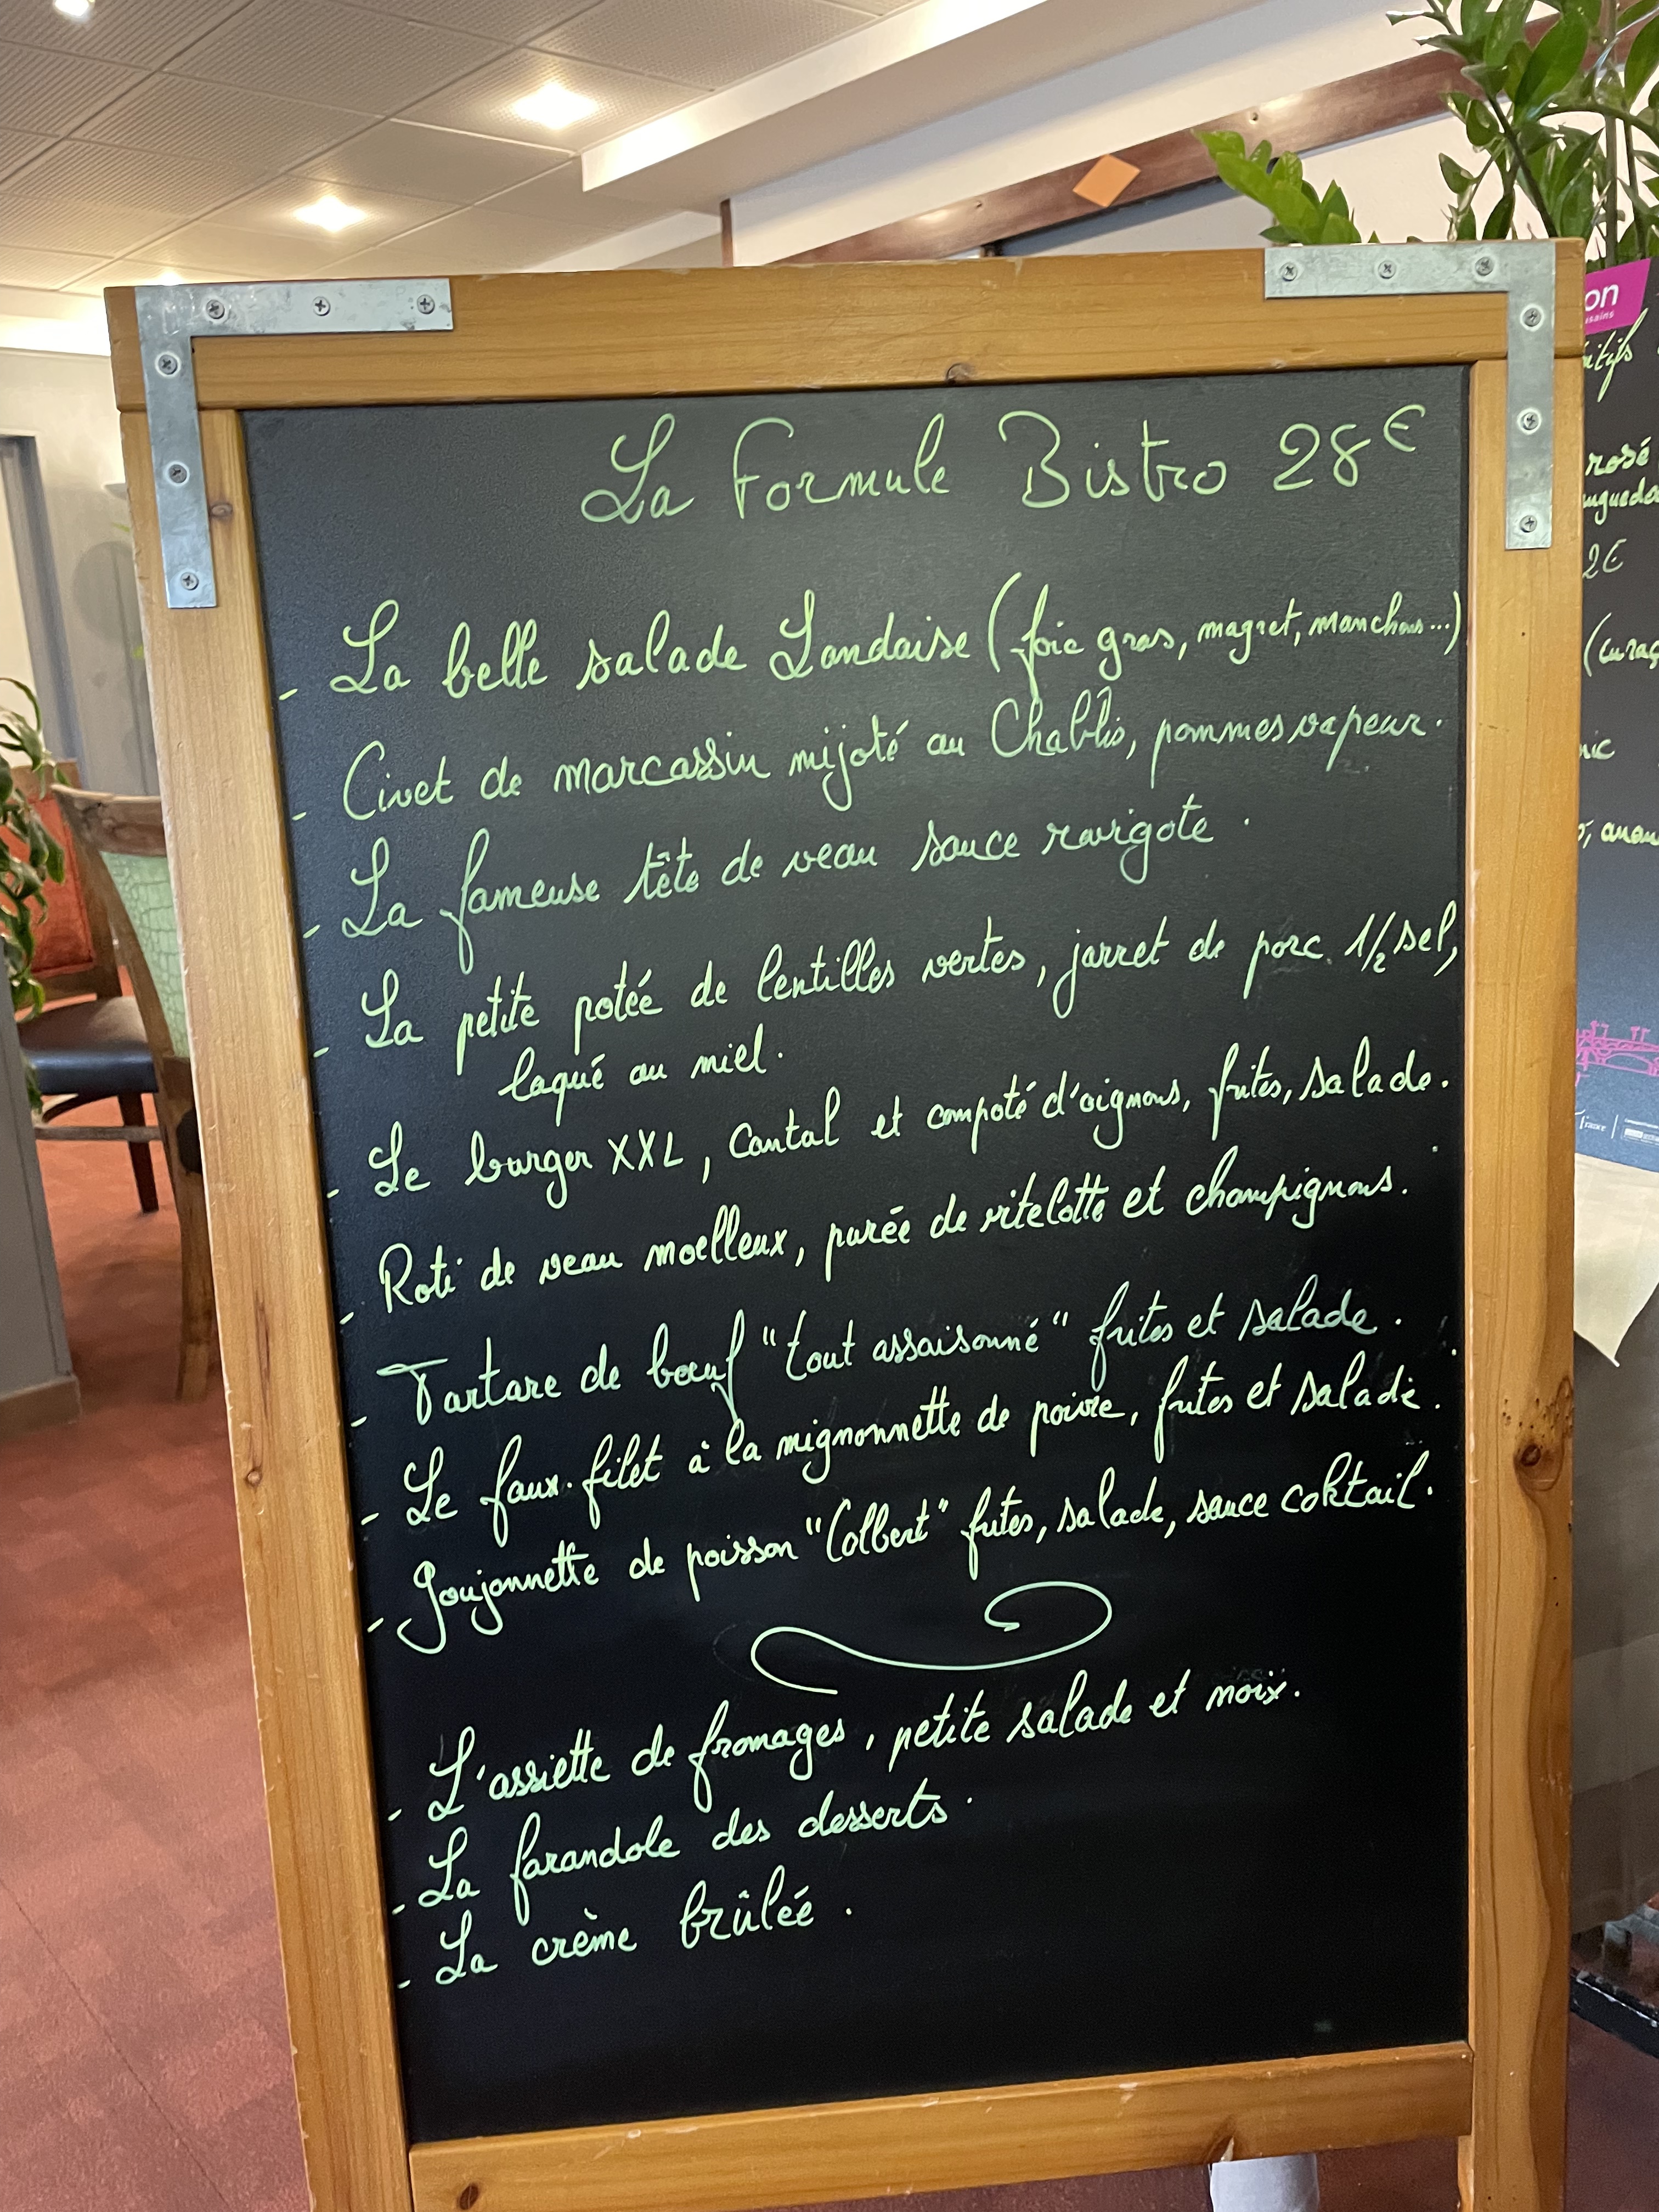 La Formule Bistro 28€
- La belle salade Landaise (foie gras, magret, manchons...)
- Civet de marcassin mijoté au Chablis, pommes vapeur.
- La fameuse tête de veau sauce ravigote.
- La petite potée de lentilles vertes, jarret de porc 1/2 sel,
laqué au miel.
- Le burger XXL, Cantal et compoté d'oignons, frites, salade.
- Roti de veau moelleux, purée de vitelotte et champignons.
- Tartare de bœuf "tout assaisonné" frites et salade.
- Le faux-filet à la mignonnette de poivre, frites et salade.
- Goujonnette de poisson "Colbert" frites, salade, sauce coktail.
- L'assiette de fromages, petite salade et noix.
- La farandole des desserts.
- La crème brûlée.
on
rosé
2€